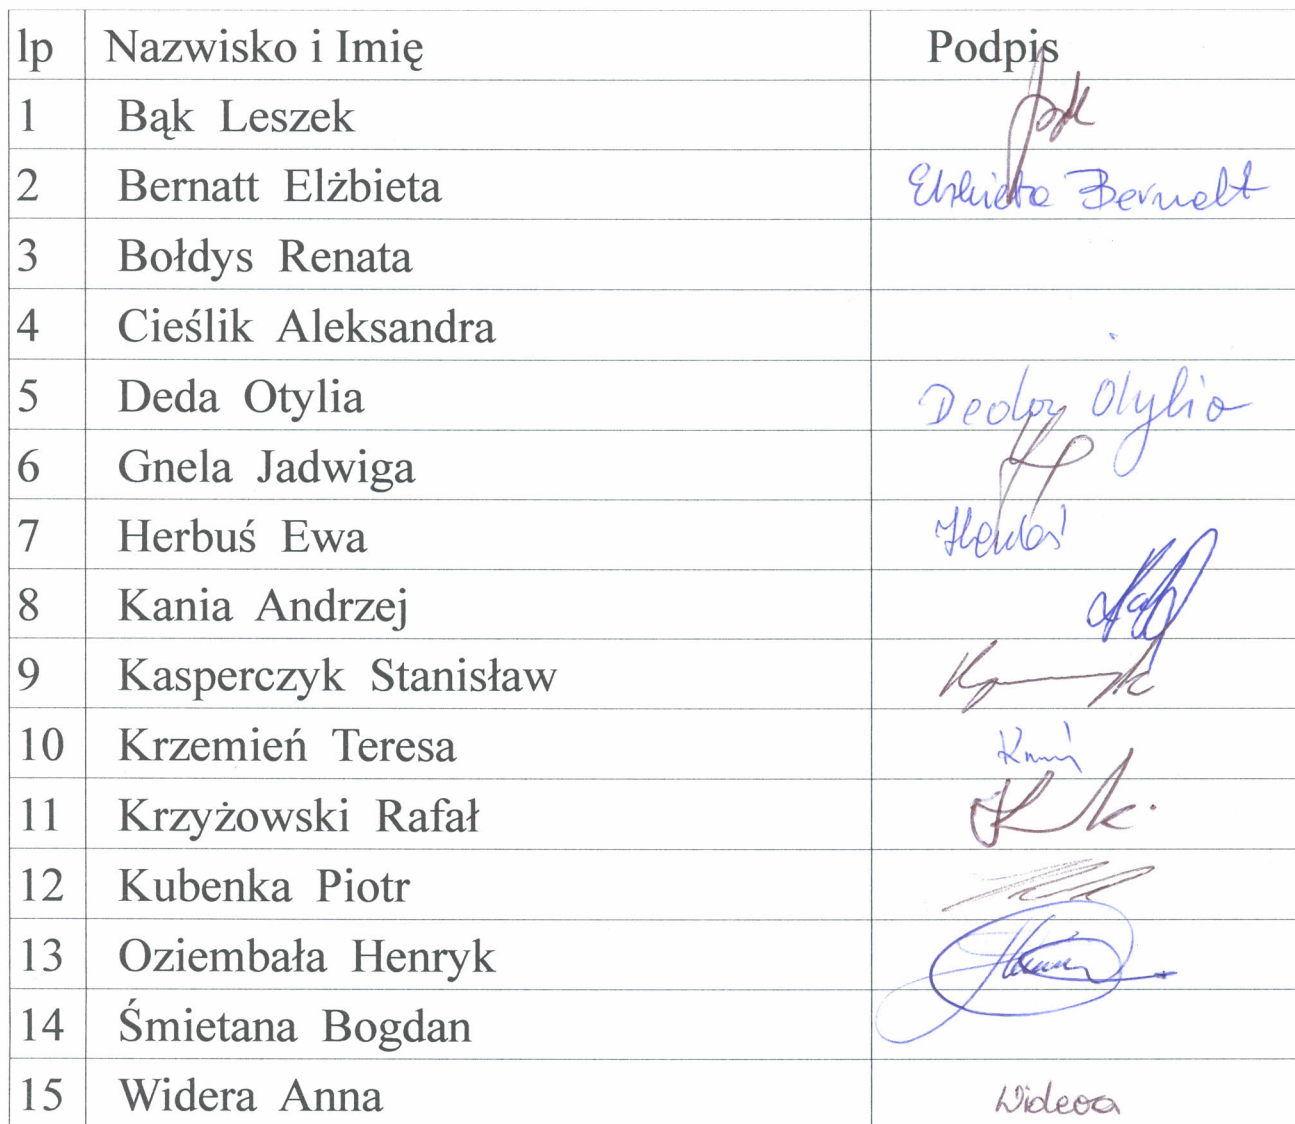 lp Nazwisko i Imię Podpis
1 Bąk Leszek
2 Bernatt Elżbieta Elżbieta Bernatt
3 Bołdys Renata
4 Cieślik Aleksandra
5 Deda Otylia Deda Otylia
6 Gnela Jadwiga
7 Herbuś Ewa Herbuś
8 Kania Andrzej
9 Kasperczyk Stanisław
10 Krzemień Teresa
11 Krzyżowski Rafał
12 Kubenka Piotr
13 Oziembała Henryk
14 Śmietana Bogdan
15 Widera Anna Widera